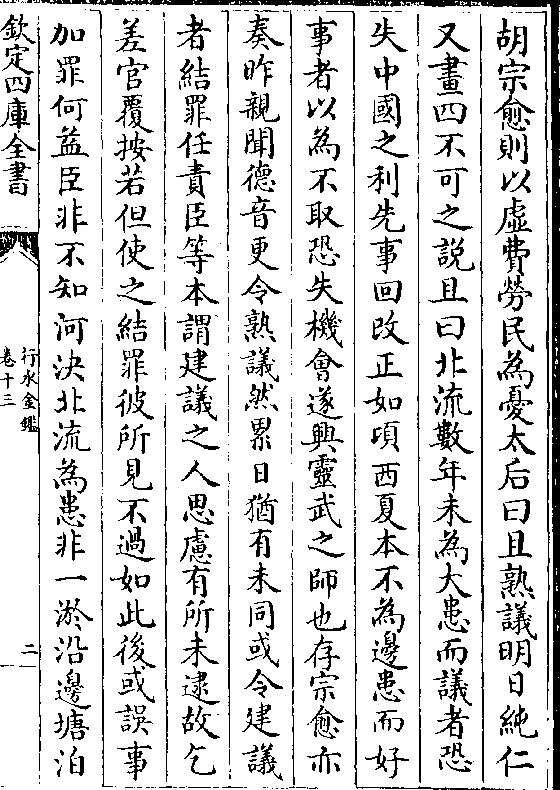 胡宗愈則以虛費勞民為憂太后曰且熟議明日純仁
又畫四不可之說且曰北流數年未為大患而議者恐
失中國之利先事回改正如頃西夏本不為邊患而好
事者以為不取恐失機會遂興靈武之師也存宗愈亦
奏昨親聞德音更令熟議然累日猶有未同或令建議
者結罪任責臣等本謂建議之人思慮有所未逮故乞
差官覆按若但使之結罪彼所見不過如此後或誤事
加罪何益臣非不知河決北流為患非一淤沿邊塘泊
欽定四庫全書
行水金鑑
卷十三
二